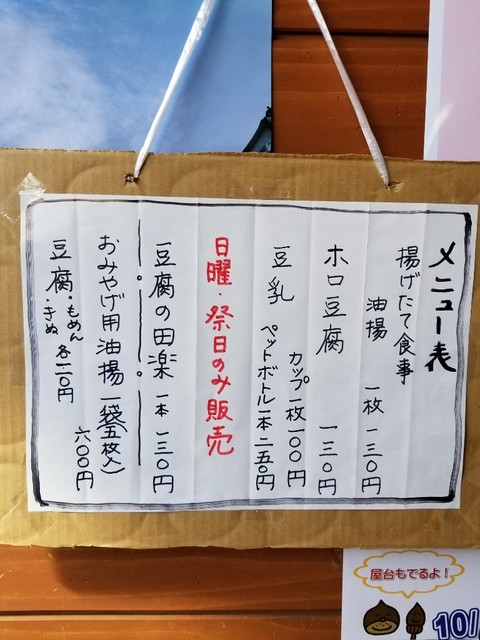 メニュー表
揚げたて食事
油揚 一枚 一三〇円
ホロ豆腐 一三〇円
豆乳 カップ一枚一〇〇円
ペットボトル一本二五〇円
日曜・祭日のみ販売
豆腐の田楽 一本 一三〇円
おみやげ用油揚一袋(五枚入)
六〇〇円
豆腐・もめん
・きぬ 各二一〇円
屋台もでるよ!
10/